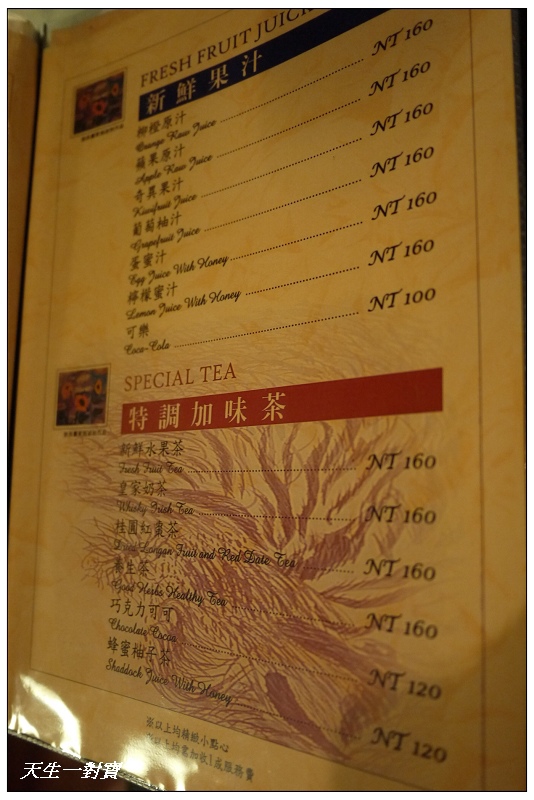 FRESH FRUIT JUICE
新鮮果汁
柳橙原汁
Orange Raw Juice NT 160
蘋果原汁
Apple Raw Juice NT 160
奇異果汁
Kiwifruit Juice NT 160
葡萄柚汁
Grapefruit Juice NT 160
蛋蜜汁
Egg Juice With Honey NT 160
檸檬蜜汁
Lemon Juice With Honey NT 160
可樂
Coca-Cola NT 100
SPECIAL TEA
特調加味茶
新鮮水果茶
Fresh Fruit Tea NT 160
皇家奶茶
Whisky Irish Tea NT 160
桂圓紅棗茶
Dried Longan Fruit and Red Date Tea NT 160
養生茶
Good Herbs Healthy Tea NT 160
巧克力可可
Chocolate Cocoa NT 120
蜂蜜柚子茶
Shaddock Juice With Honey NT 120
※以上均積緻小點心
※以上均需加收1成服務費
天生一對寶